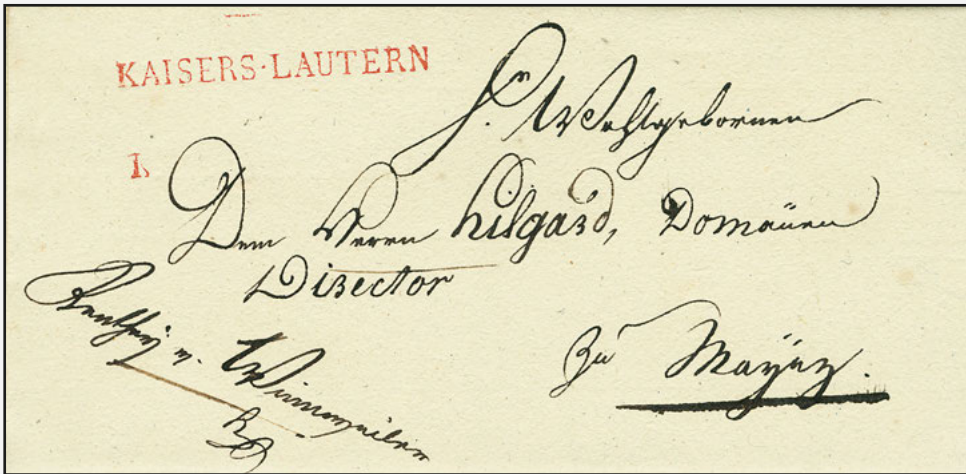 KAISERS·LAUTERN
Sr. Wohlgebornen
I,
Dem Herrn Hilgard, Domänen
Director
Zu Maynz.
Rentheÿ v. Winnweiler